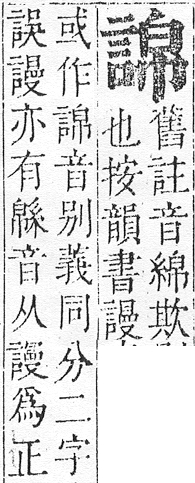 謆
舊註音綿欺
也按韻書謾
或作謆音别義同分二字
誤謾亦有緜音从謾爲正